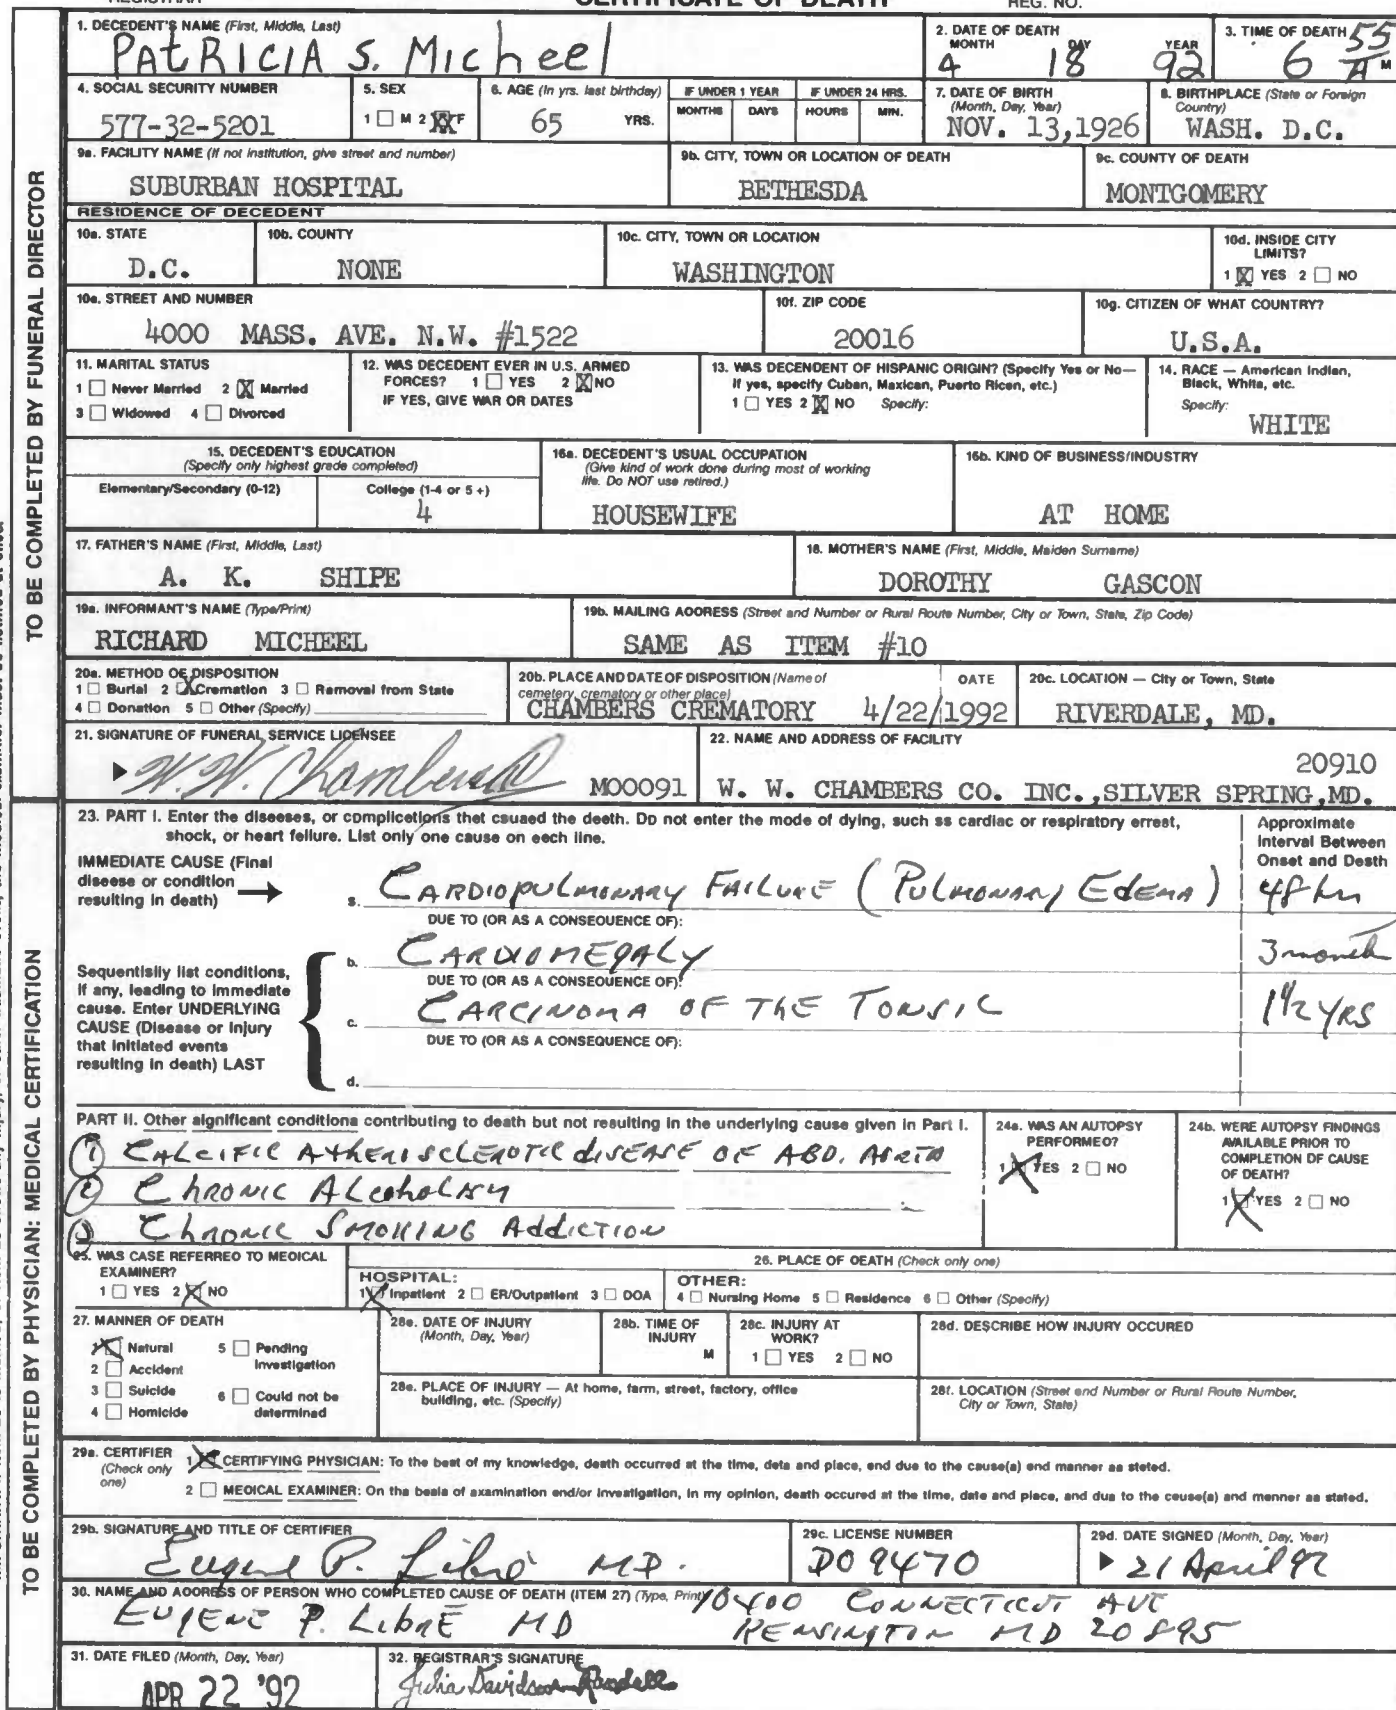 CERTIFICATE OF DEATH
REGISTRAR REG. NO.
TO BE COMPLETED BY FUNERAL DIRECTOR
1. DECEDENT'S NAME (First, Middle, Last)
PatRICIA S. Micheel
2. DATE OF DEATH
MONTH DAY YEAR
4 18 92
3. TIME OF DEATH
6 55 A M
4. SOCIAL SECURITY NUMBER
577-32-5201
5. SEX
1 M 2 F
6. AGE (In yrs. last birthday)
65 YRS.
IF UNDER 1 YEAR
MONTHS DAYS
IF UNDER 24 HRS.
HOURS MIN.
7. DATE OF BIRTH
(Month, Day, Year)
NOV. 13,1926
8. BIRTHPLACE (State or Foreign
Country)
WASH. D.C.
9a. FACILITY NAME (If not institution, give street and number)
SUBURBAN HOSPITAL
9b. CITY, TOWN OR LOCATION OF DEATH
BETHESDA
9c. COUNTY OF DEATH
MONTGOMERY
RESIDENCE OF DECEDENT
10a. STATE
D.C.
10b. COUNTY
NONE
10c. CITY, TOWN OR LOCATION
WASHINGTON
10d. INSIDE CITY
LIMITS?
1 X YES 2 NO
10e. STREET AND NUMBER
4000 MASS. AVE. N.W. #1522
10f. ZIP CODE
20016
10g. CITIZEN OF WHAT COUNTRY?
U.S.A.
11. MARITAL STATUS
1 Never Married 2 X Married
3 Widowed 4 Divorced
12. WAS DECEDENT EVER IN U.S. ARMED
FORCES? 1 YES 2 X NO
IF YES, GIVE WAR OR DATES
13. WAS DECENDENT OF HISPANIC ORIGIN? (Specify Yes or No—
If yes, specify Cuban, Maxican, Puerto Ricen, etc.)
1 YES 2 X NO Specify:
14. RACE — American Indian,
Black, White, etc.
Specify:
WHITE
15. DECEDENT'S EDUCATION
(Specify only highest grade completed)
Elementary/Secondary (0-12) College (1-4 or 5 +)
4
16a. DECEDENT'S USUAL OCCUPATION
(Give kind of work done during most of working
life. Do NOT use retired.)
HOUSEWIFE
16b. KIND OF BUSINESS/INDUSTRY
AT HOME
17. FATHER'S NAME (First, Middle, Last)
A. K. SHIPE
18. MOTHER'S NAME (First, Middle, Maiden Surname)
DOROTHY GASCON
19a. INFORMANT'S NAME (Type/Print)
RICHARD MICHEEL
19b. MAILING ADDRESS (Street and Number or Rural Route Number, City or Town, State, Zip Code)
SAME AS ITEM #10
20a. METHOD OF DISPOSITION
1 Burial 2 X Cremation 3 Removal from State
4 Donation 5 Other (Specify)
20b. PLACE AND DATE OF DISPOSITION (Name of
cemetery, crematory or other place)
DATE
CHAMBERS CREMATORY 4/22/1992
20c. LOCATION — City or Town, State
RIVERDALE, MD.
21. SIGNATURE OF FUNERAL SERVICE LICENSEE
W. W. Chambers
M00091
22. NAME AND ADDRESS OF FACILITY
20910
W. W. CHAMBERS CO. INC.,SILVER SPRING,MD.
TO BE COMPLETED BY PHYSICIAN: MEDICAL CERTIFICATION
23. PART I. Enter the diseeses, or complicetions thet csuaed the deeth. Do not enter the mode of dying, such ss cardiac or respiratory errest,
shock, or heart feilure. List only one cause on eech line.
Approximate
Interval Between
Onset and Desth
IMMEDIATE CAUSE (Final
diseese or condition
resulting in death)
a. CARDIOPULMONARY FAILURE (PULMONARY EdEMA) 48 hrs
DUE TO (OR AS A CONSEQUENCE OF):
b. CARDIOMEGALY 3 month
DUE TO (OR AS A CONSEQUENCE OF):
c. CARCINOMA OF THE TONSIL 1 1/2 YRS
DUE TO (OR AS A CONSEQUENCE OF):
d.
Sequentislly list conditions,
If any, leading to Immediate
cause. Enter UNDERLYING
CAUSE (Disease or Injury
that Initiated events
resulting in death) LAST
PART II. Other significant conditions contributing to death but not resulting in the underlying cause given in Part I.
1 CALCIFIC AtHERISCLEROTIC dISEASE OF ABD. AORTA
2 Chronic ALcohoLism
3 Chronic SMOKING AddICTION
24a. WAS AN AUTOPSY
PERFORMED?
1 X YES 2 NO
24b. WERE AUTOPSY FINDINGS
AVAILABLE PRIOR TO
COMPLETION OF CAUSE
OF DEATH?
1 X YES 2 NO
25. WAS CASE REFERRED TO MEDICAL
EXAMINER?
1 YES 2 X NO
26. PLACE OF DEATH (Check only one)
HOSPITAL:
1 X Inpatient 2 ER/Outpatient 3 DOA
OTHER:
4 Nursing Home 5 Residence 6 Other (Specify)
27. MANNER OF DEATH
X Natural 5 Pending
2 Accident Investigation
3 Suicide 6 Could not be
4 Homicide determined
28a. DATE OF INJURY
(Month, Day, Year)
28b. TIME OF
INJURY
M
28c. INJURY AT
WORK?
1 YES 2 NO
28d. DESCRIBE HOW INJURY OCCURED
28e. PLACE OF INJURY — At home, farm, street, factory, office
building, etc. (Specify)
28f. LOCATION (Street end Number or Rural Route Number,
City or Town, State)
29a. CERTIFIER
(Check only
one)
1 X CERTIFYING PHYSICIAN: To the best of my knowledge, death occurred at the time, dete and place, end due to the cause(a) end manner as steted.
2 MEDICAL EXAMINER: On the besis of examination end/or investigation, in my opinion, death occured at the time, date and place, and due to the ceuse(a) and menner as stated.
29b. SIGNATURE AND TITLE OF CERTIFIER
Eugene P. Libré MD.
29c. LICENSE NUMBER
D09470
29d. DATE SIGNED (Month, Day, Year)
21 April 92
30. NAME AND ADDRESS OF PERSON WHO COMPLETED CAUSE OF DEATH (ITEM 27) (Type, Print)
EUGENE P. LibRÉ MD
10400 CONNECTICUT AVE
KENSINGTON MD 20895
31. DATE FILED (Month, Day, Year)
APR 22 '92
32. REGISTRAR'S SIGNATURE
Julia Davidson-Randall